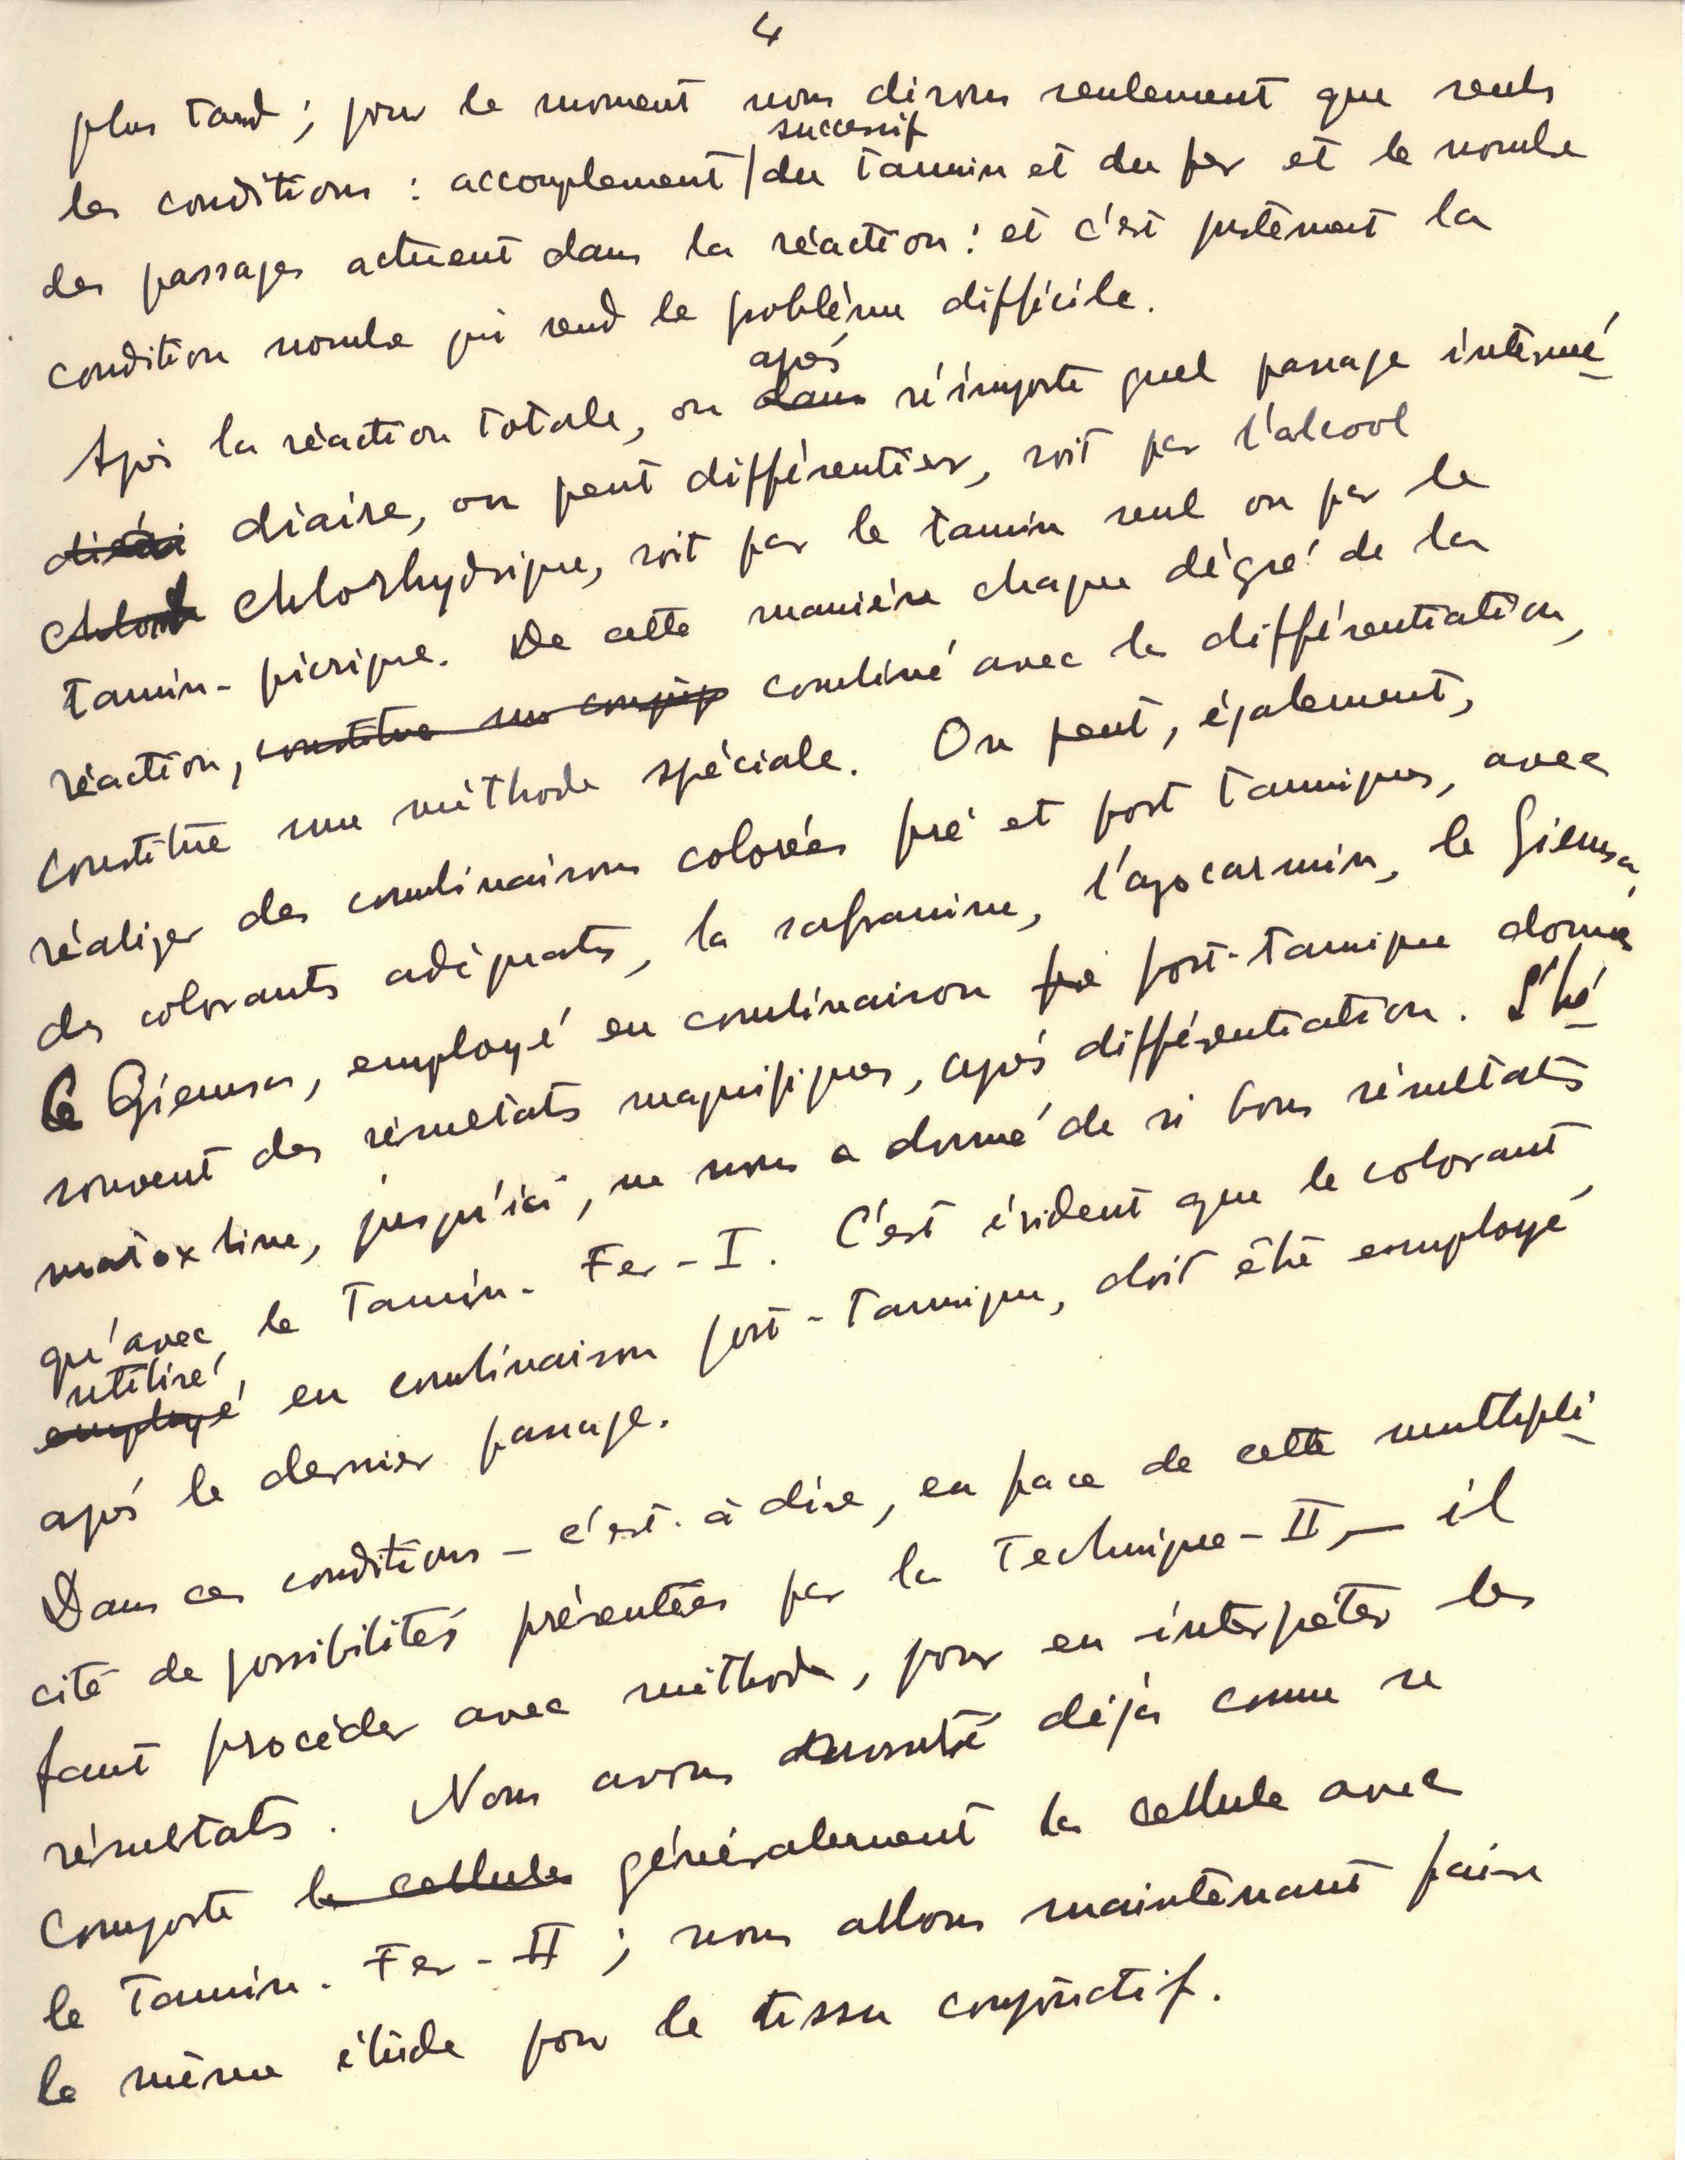 4
plus tard ; pour le moment nous disons seulement que seuls
successif
les conditions : accouplement / du tannin et du fer et le nombre
des passages actuent dans la réaction : et c'est justement la
condition nombre qui rend le problème difficile.
après
Après la réaction totale, ou dans n'importe quel passage intermé
diaire, on peut différentier, soit par l'alcool
chlorhydrique, soit par le tannin seul ou par le
tannin-picrique. De cette manière chaque dégré de la
réaction, constitue une combiné avec la différentiation,
constitue une méthode spéciale. On peut, également,
réalizer des combinaisons colorées pré et post tanniques, avec
des colorants adéquats, la safranine, l'azocarmin, le Giemsa,
Le Giemsa, employé en combinaison pré post-tannique donne
souvent des résultats magnifiques, après différentiation. L'hé
matoxline, jusqu'ici, ne nous a donné de si bons résultats
qu'avec le Tannin-Fer-I. C'est évident que le colorant,
utilisé,
employé en combinaison post-tannique, doit être employé
après le dernier passage.
Dans ces conditions – c'est-à dire, en face de cette multipli
cité de possibilités présentées par la Technique-II, – il
faut procéder avec méthode, pour en intérpéter les
résultats. Nous avons montré déjà comme se
comporte la cellule généralement la cellule avec
le Tannin-Fer-II ; nous allons maintenant faire
la même étude pour le tissu conjonctif.